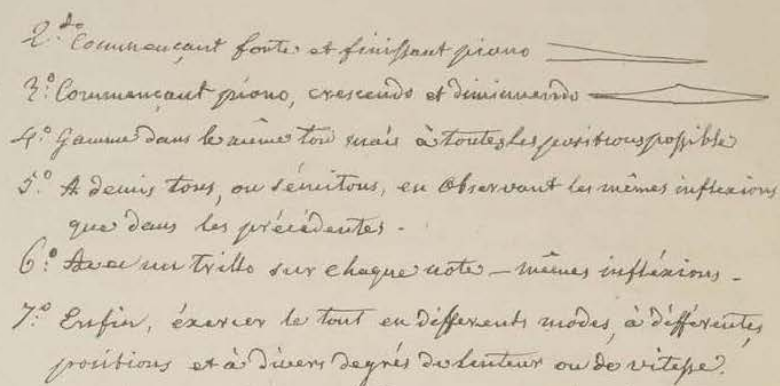 2.do Commençant forte et finissant piano
3.o Commençant piano, crescendo et diminuendo
4.o Gamme dans le même ton mais à toutes les positions possible
5.o A demis tons, ou sémitons, en observant les mêmes inflexions
que dans les précédentes.
6.o Avec un trillo sur chaque note – mêmes infléxions.
7.o Enfin, éxercer le tout en différents modes, à différentes
positions et à divers degrés de lenteur ou de vitesse.